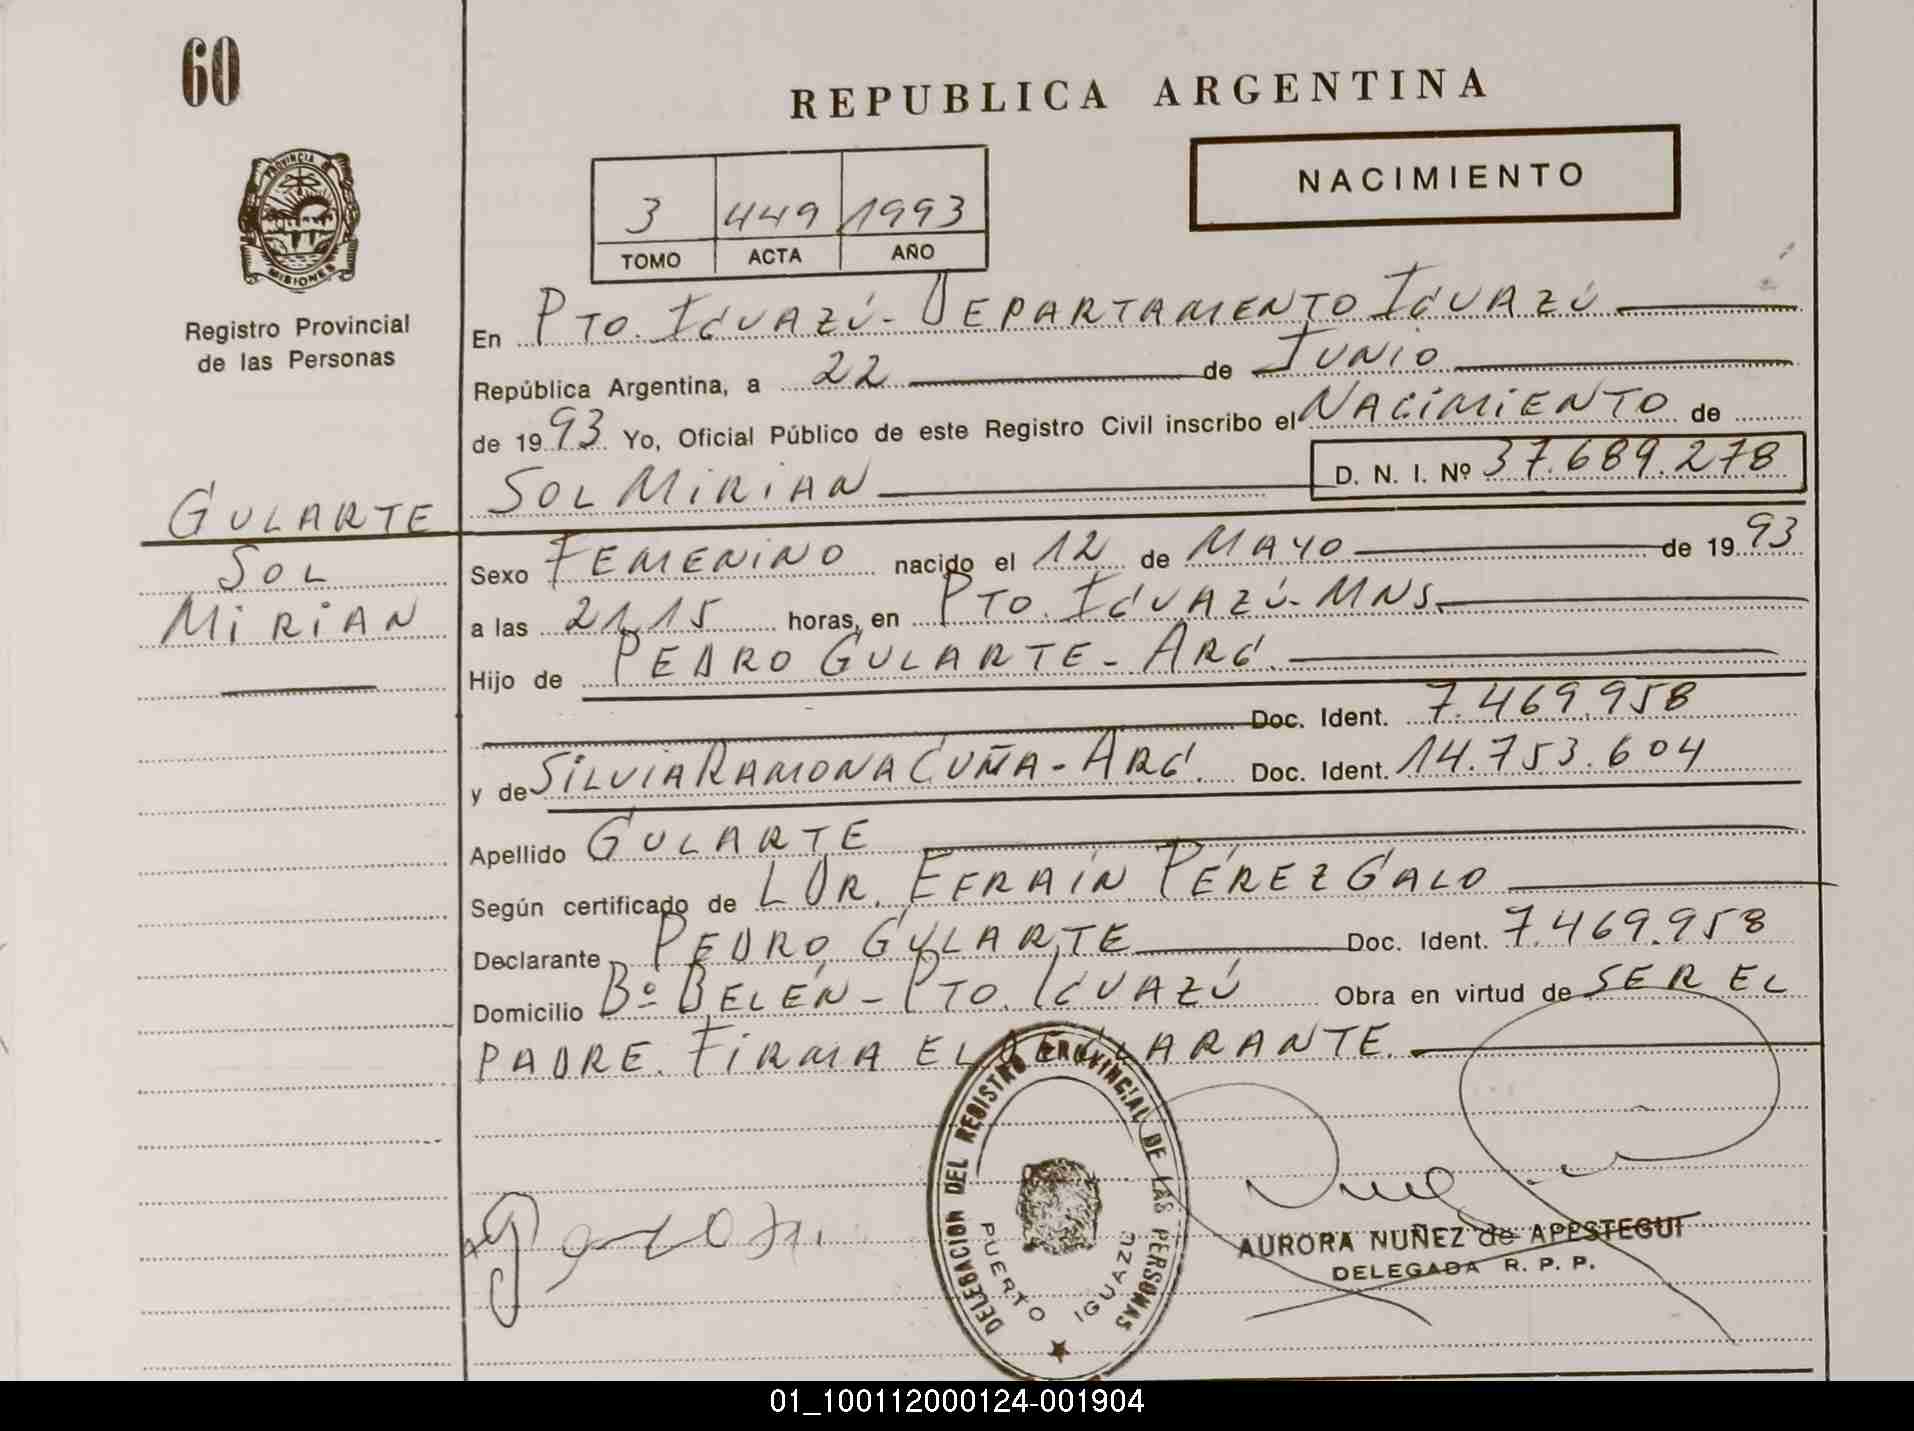 60
REPUBLICA ARGENTINA
NACIMIENTO
3 449 1993
TOMO ACTA AÑO
PROVINCIA DE
MISIONES
Registro Provincial
de las Personas
En PTO. IGUAZÚ - DEPARTAMENTO IGUAZÚ
República Argentina, a 22 de JUNIO
de 1993 Yo, Oficial Público de este Registro Civil inscribo el NACIMIENTO de
SOL MIRIAN D. N. I. Nº 37.689.278
GULARTE
SOL
MIRIAN
Sexo FEMENINO nacido el 12 de MAYO de 1993
a las 21.15 horas, en PTO. IGUAZÚ - MNS.
Hijo de PEDRO GULARTE - ARG.
Doc. Ident. 7.469.958
y de SILVIA RAMONA CUÑA - ARG. Doc. Ident. 14.753.604
Apellido GULARTE
Según certificado de DR. EFRAÍN PÉREZ GALO
Declarante PEDRO GULARTE Doc. Ident. 7.469.958
Domicilio Bº BELÉN - PTO. IGUAZÚ Obra en virtud de SER EL
PADRE. FIRMA EL DECLARANTE.
DELEGACION DEL REGISTRO PROVINCIAL DE LAS PERSONAS
PUERTO IGUAZU
AURORA NUÑEZ de APESTEGUI
DELEGADA R. P. P.
01_100112000124-001904